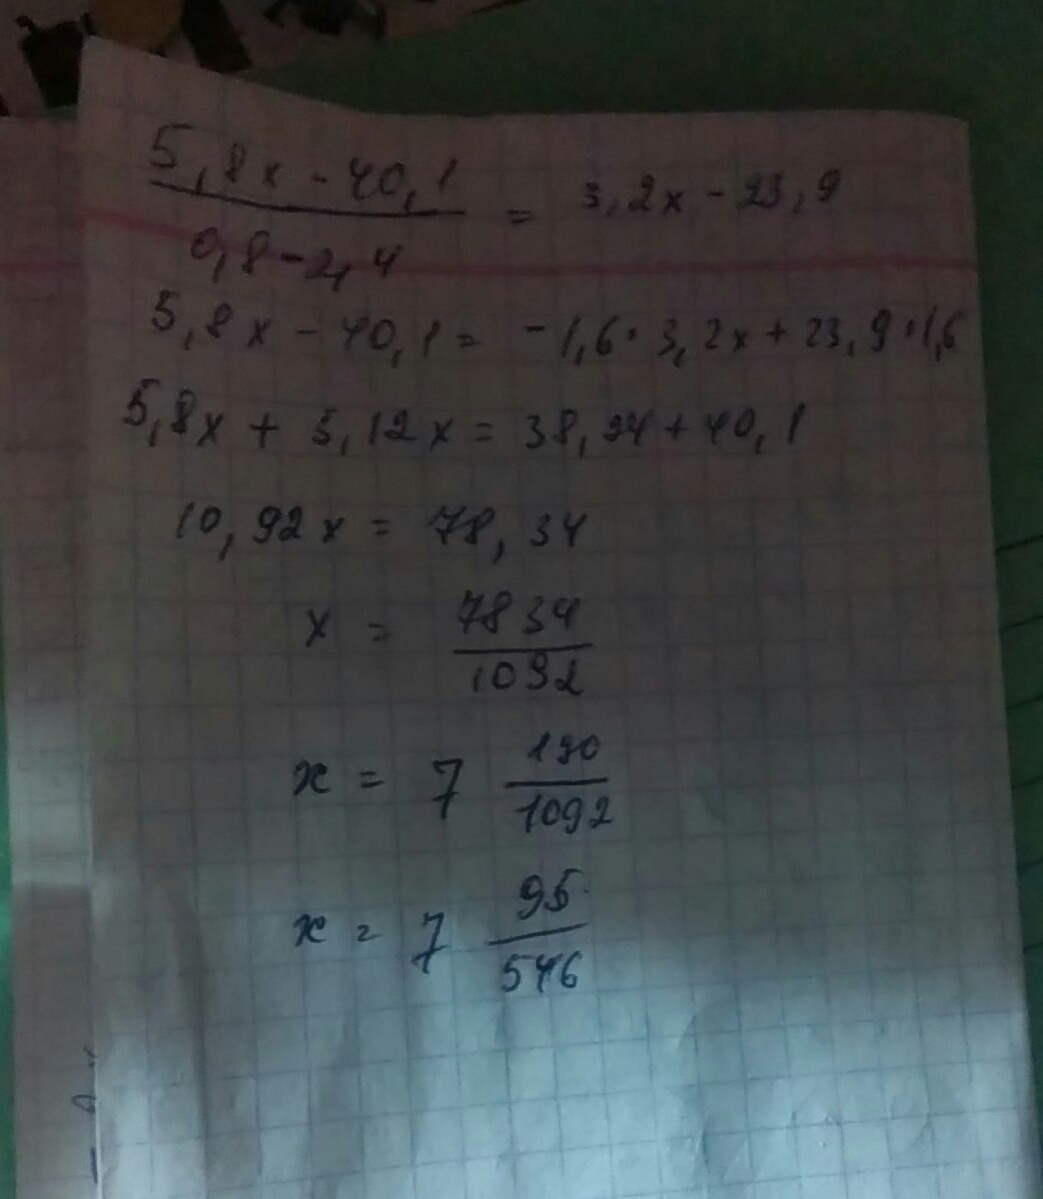 5,8x - 40,1 / 0,8 - 2,4 = 3,2x - 23,9
5,8x - 40,1 = -1,6 · 3,2x + 23,9 · 1,6
5,8x + 5,12x = 38,24 + 40,1
10,92x = 78,34
x = 7834 / 1092
x = 7 190 / 1092
x = 7 95 / 546